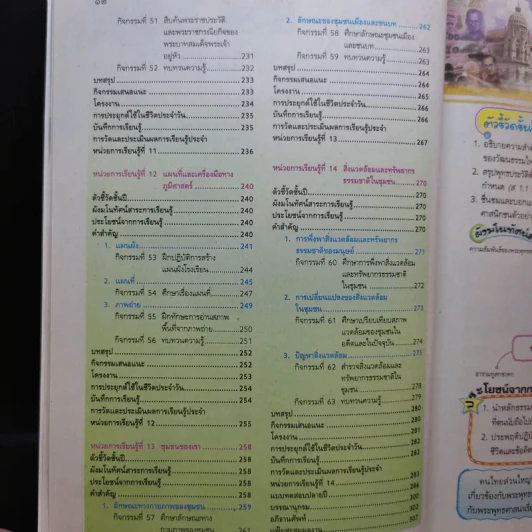 ๑๒
กิจกรรมที่ 51 สืบค้นพระราชประวัติ
และพระราชกรณียกิจของ
พระบาทสมเด็จพระเจ้า
อยู่หัว 231
กิจกรรมที่ 52 ทบทวนความรู้ 232
บทสรุป 233
กิจกรรมเสนอแนะ 233
โครงงาน 234
การประยุกต์ใช้ในชีวิตประจำวัน 235
บันทึกการเรียนรู้ 235
การวัดและประเมินผลการเรียนรู้ประจำ
หน่วยการเรียนรู้ที่ 11 236
หน่วยการเรียนรู้ที่ 12 แผนที่และเครื่องมือทาง
ภูมิศาสตร์ 240
ตัวชี้วัดชั้นปี 240
ผังมโนทัศน์สาระการเรียนรู้ 240
ประโยชน์จากการเรียนรู้ 240
คำสำคัญ 240
1. แผนผัง 241
กิจกรรมที่ 53 ฝึกปฏิบัติการสร้าง
แผนผังโรงเรียน 244
2. แผนที่ 245
กิจกรรมที่ 54 ศึกษาเรื่องแผนที่ 247
3. ภาพถ่าย 249
กิจกรรมที่ 55 ฝึกทักษะการอ่านสภาพ
พื้นที่จากภาพถ่าย 250
กิจกรรมที่ 56 ทบทวนความรู้ 251
บทสรุป 252
กิจกรรมเสนอแนะ 252
โครงงาน 253
การประยุกต์ใช้ในชีวิตประจำวัน 254
บันทึกการเรียนรู้ 254
การวัดและประเมินผลการเรียนรู้ประจำ
หน่วยการเรียนรู้ที่ 12 255
หน่วยการเรียนรู้ที่ 13 ชุมชนของเรา 258
ตัวชี้วัดชั้นปี 258
ผังมโนทัศน์สาระการเรียนรู้ 258
ประโยชน์จากการเรียนรู้ 258
คำสำคัญ 258
1. ลักษณะทางกายภาพของชุมชน 259
กิจกรรมที่ 57 ศึกษาลักษณะทาง
กายภาพของชุมชน 261
2. ลักษณะของชุมชนเมืองและชนบท 262
กิจกรรมที่ 58 ศึกษาลักษณะชุมชนเมือง
และชนบท 263
กิจกรรมที่ 59 ทบทวนความรู้ 263
บทสรุป 264
กิจกรรมเสนอแนะ 264
โครงงาน 265
การประยุกต์ใช้ในชีวิตประจำวัน 266
บันทึกการเรียนรู้ 266
การวัดและประเมินผลการเรียนรู้ประจำ
หน่วยการเรียนรู้ที่ 13 267
หน่วยการเรียนรู้ที่ 14 สิ่งแวดล้อมและทรัพยากร
ธรรมชาติในชุมชน 270
ตัวชี้วัดชั้นปี 270
ผังมโนทัศน์สาระการเรียนรู้ 270
ประโยชน์จากการเรียนรู้ 270
คำสำคัญ 270
1. การพึ่งพาสิ่งแวดล้อมและทรัพยากร
ธรรมชาติของมนุษย์ 271
กิจกรรมที่ 60 ศึกษาการพึ่งพาสิ่งแวดล้อม
และทรัพยากรธรรมชาติ
ในชุมชน 272
2. การเปลี่ยนแปลงของสิ่งแวดล้อม
ในชุมชน 273
กิจกรรมที่ 61 ศึกษาเปรียบเทียบสภาพ
แวดล้อมของชุมชนใน
อดีตและในปัจจุบัน 274
3. ปัญหาสิ่งแวดล้อม 275
กิจกรรมที่ 62 สำรวจสิ่งแวดล้อมและ
ทรัพยากรธรรมชาติใน
ชุมชน 278
กิจกรรมที่ 63 ทบทวนความรู้ 279
บทสรุป 280
กิจกรรมเสนอแนะ 280
โครงงาน 281
การประยุกต์ใช้ในชีวิตประจำวัน 282
บันทึกการเรียนรู้ 282
การวัดและประเมินผลการเรียนรู้ประจำ
หน่วยการเรียนรู้ที่ 14 283
แบบทดสอบปลายปี 286
บรรณานุกรม 302
อภิธานศัพท์ 307
ตัวชี้วัดชั้น
1. อธิบายความสำคั
ของวัฒนธรรมไท
2. สรุปพุทธประวัติตั้
กำหนด (ส
3. ชื่นชมและบอกแ
ศาสนิกชนตัวอย่า
ผังมโนทัศน์ส
ความสัมพันธ์ของพระพุทธ
ประโยชน์จาก
1. นำหลักธรรม
ที่ตนนับถือไป
2. ประพฤติปฏิบั
ชีวิตและข้อคิด
คนไทยส่วนใหญ่
เกี่ยวข้องกับพระพุท
กับพระพุทธศาสนา